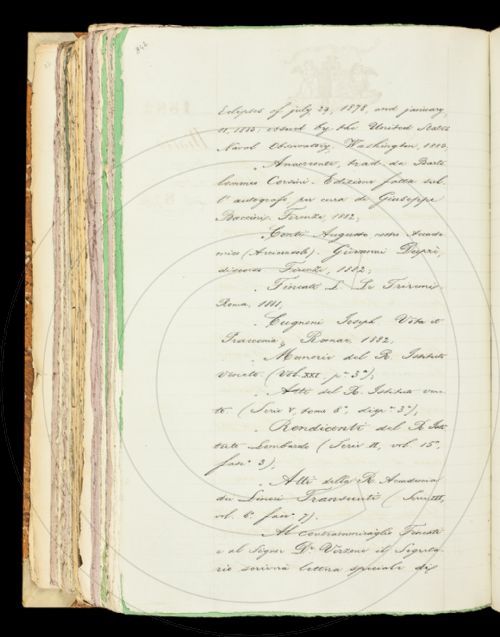 842
Eclipses of july 29, 1878, and january
11, 1880; issued by the United States
Naval Observatory. Washington, 1880.
. Anacreonte, trad. da Barto
lommeo Corsini. Edizione fatta sul
l'autografo per cura di Giuseppe
Baccini. Firenze, 1882;
. Conti Augusto nostro Accade
mico (Arciconsolo). Giovanni Duprè,
discorso. Firenze, 1882;
. Fincati L. Le Triremi.
Roma, 1881;
. Cugnoni Joseph. Vita et
Romae, 1882;
. Memorie del R. Istituto
veneto. (Vol. XXI, p.e 3.a);
. Atti del R. Istituto vene
to. (Serie V, tomo 8.°, disp.e 3.a);
. Rendiconti del R. Isti
tuto Lombardo (Serie II, vol. 15°,
fasc.° 3);
. Atti della R. Accademia
dei Lincei Transunti (Serie III,
vol. 6.° fasc.° 7).
Al contrammiraglio Fincati
e al Signor D.r il Segreta
rio scriverà lettera speciale di